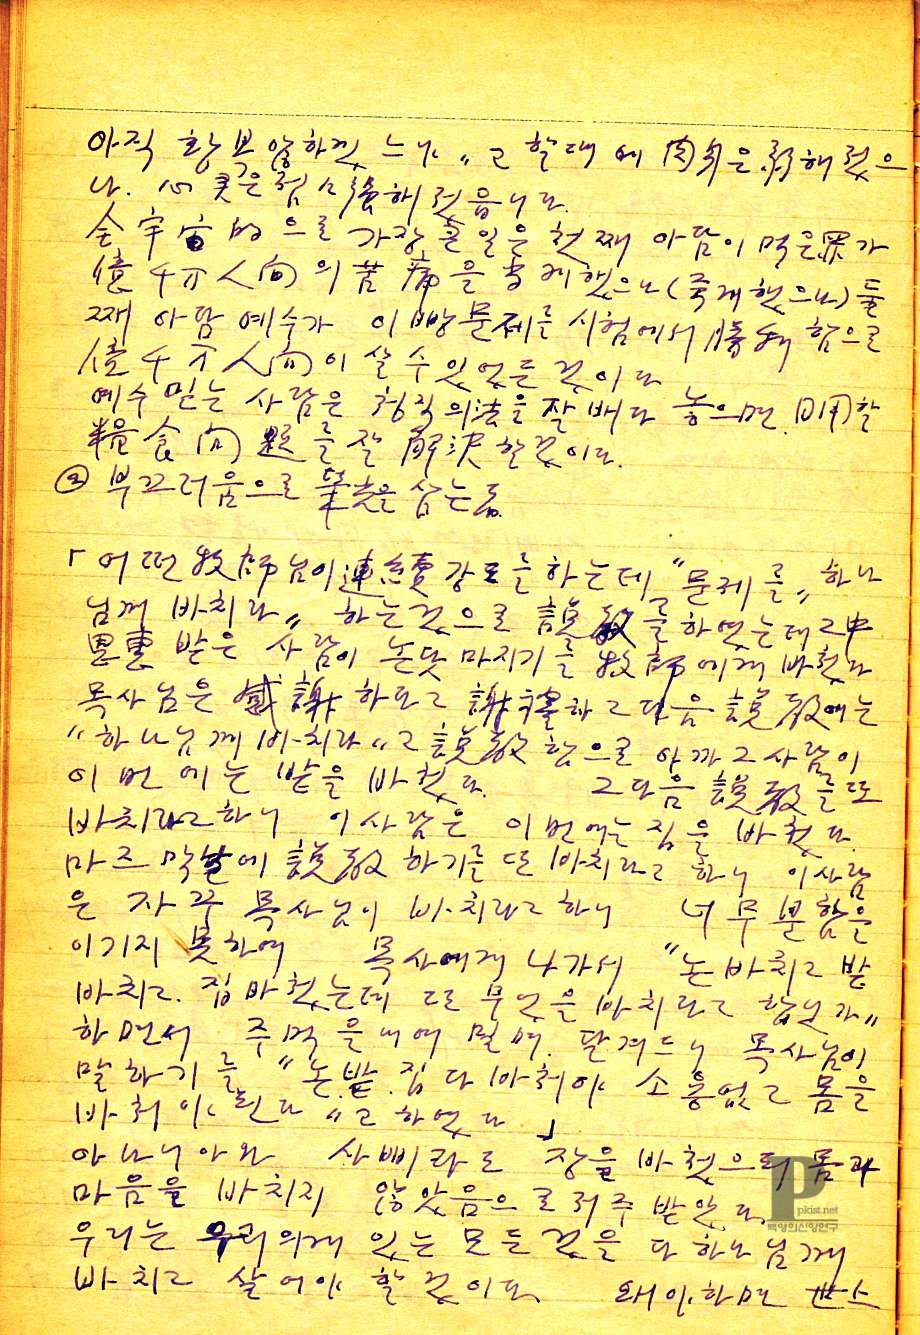 아직 항복 않하겠느냐 " 고 할때에 肉身은 弱해졌으
나. 心臭은 점점 強해졌읍니다.
全宇宙的으로 가장 큰일은 첫째 아담이 먹은 罪가
億千万人间의 苦痛을 当케했으나 (죽게했으나) 둘
째 아담 예수가 이 빵문제를 시험에서 勝利함으로
億千万人间이 살수있었든 것이다
예수믿는 사람은 정직의 法을 잘 배다 놓으면. 日用할
糧食问題를 잘 解決할것이다.
② 부끄러움으로 榮光을 삼는 등.
「어떤 牧師님이 連續 강도를 하는데 "문제를" 하나
님께 바치라" 하는 것으로 說教를 하였는데 그中
恩惠 받은 사람이 논닷마지기를 牧師에게 바쳤다
목사님은 感謝하다고 謝禮하고 다음 說教에는
"하나님께 바치라" 고 說教함으로 아까 그사람이
이번에는 밭을 바쳤다. 그다음 說教를 또
바치라고하니 이사람은 이번에는 집을 바쳤다.
마즈막날에 說教하기를 또 바치라고 하니 이사람
은 자꾸 목사님이 바치라고하니 너무 분함을
이기지 못하여 목사에게 나가서 "논바치고 밭
바치고. 집바쳤는데 또 무엇을 바치라고 합닛가"
하면서 주먹을 내여 밀며. 달겨드니 목사님이
말하기를 "논.밭.집 다 바쳐야 소용없고 몸을
바쳐야 된다 " 고 하였다 」
아나니아와 삽삐라도 장을 바쳤으되 몸과
마음을 바치지 않았음으로 저주 받았다.
우리는 우리의게 있는 모든것을 다 하나님께
바치고 살어야 할것이다 왜야하면 世上
pkist.net
백영희신앙연구